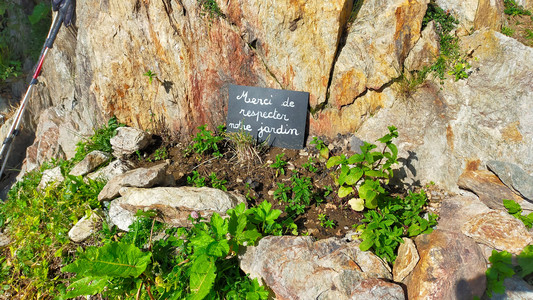 Merci de
respecter
notre jardin